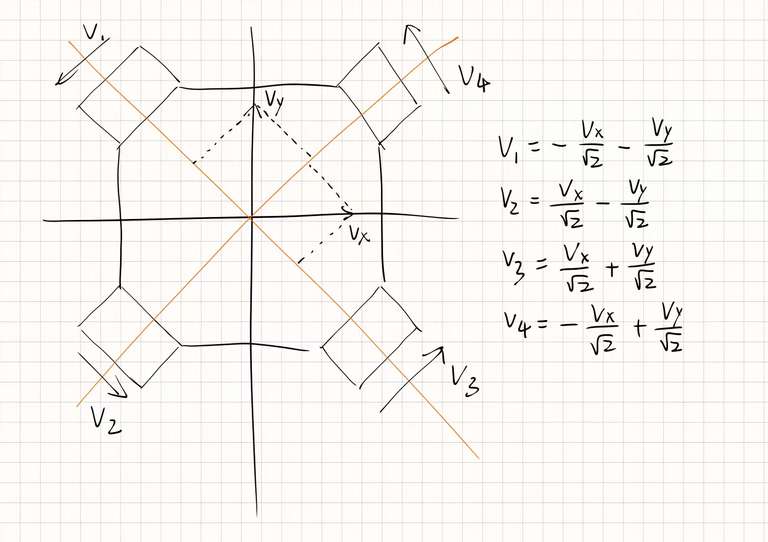 V₁
V₄
Vy
Vx
V₂
V₃
V₁ = - Vx/√2 - Vy/√2
V₂ = Vx/√2 - Vy/√2
V₃ = Vx/√2 + Vy/√2
V₄ = - Vx/√2 + Vy/√2